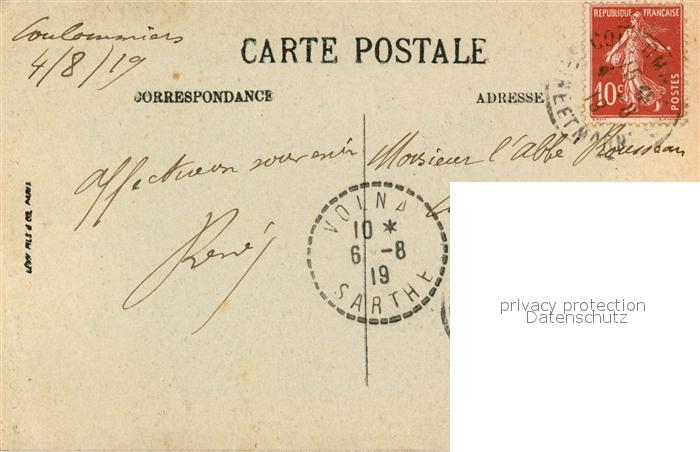 Coulommiers
4/8/19
CARTE POSTALE
CORRESPONDANCE
ADRESSE
REPUBLIQUE FRANÇAISE
10c
POSTES
SEINE ET MARNE
Affectueux souvenir
René
Monsieur l'abbé Rousseau
VOLNA
10 *
6 -8
19
SARTHE
LÉVY FILS & CIE, PARIS
privacy protection
Datenschutz